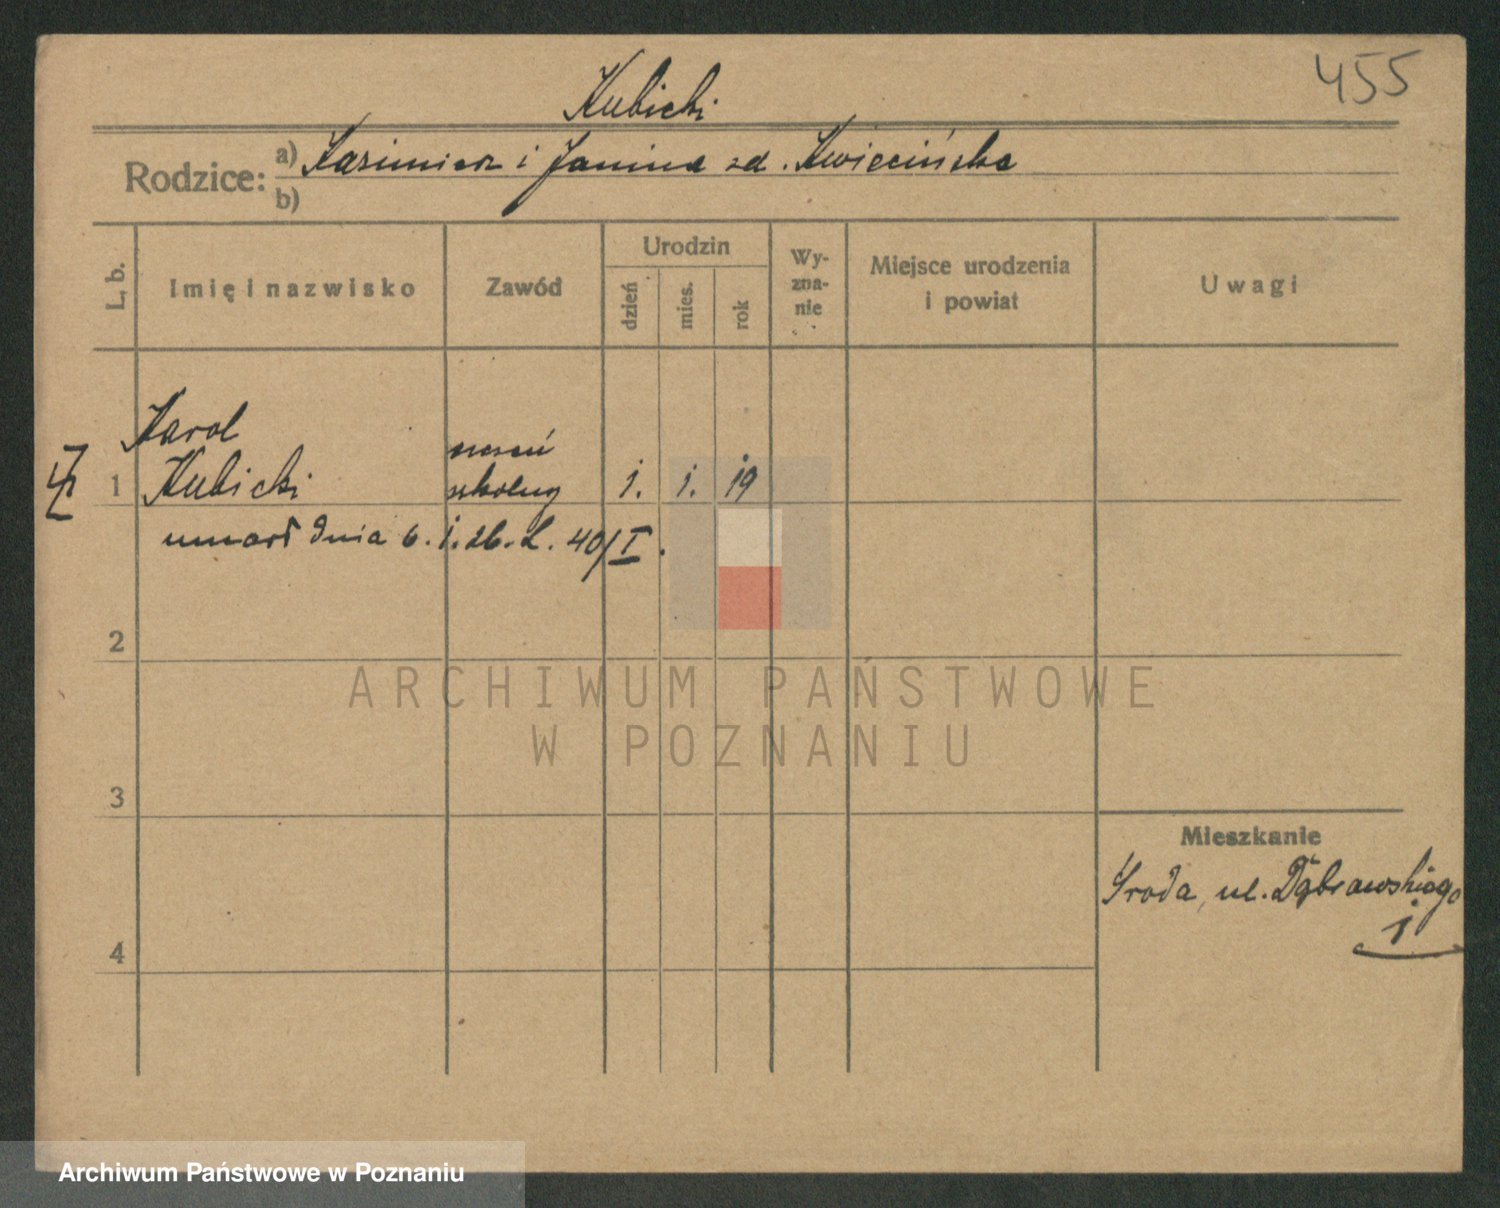 455
Kubicki
Rodzice:
a) Kazimierz i Janina zd. Kwiecińska
b)
L. b.
Imię i nazwisko
Zawód
Urodzin
dzień
mies.
rok
Wy-
zna-
nie
Miejsce urodzenia
i powiat
Uwagi
Karol
1 Kubicki
uczeń
szkolny
1. 1. 19
umarł dnia 6. 1. 26. L. 40/I.
2
3
4
Mieszkanie
Środa, ul. Dąbrowskiego
1
ARCHIWUM PAŃSTWOWE
W POZNANIU
Archiwum Państwowe w Poznaniu